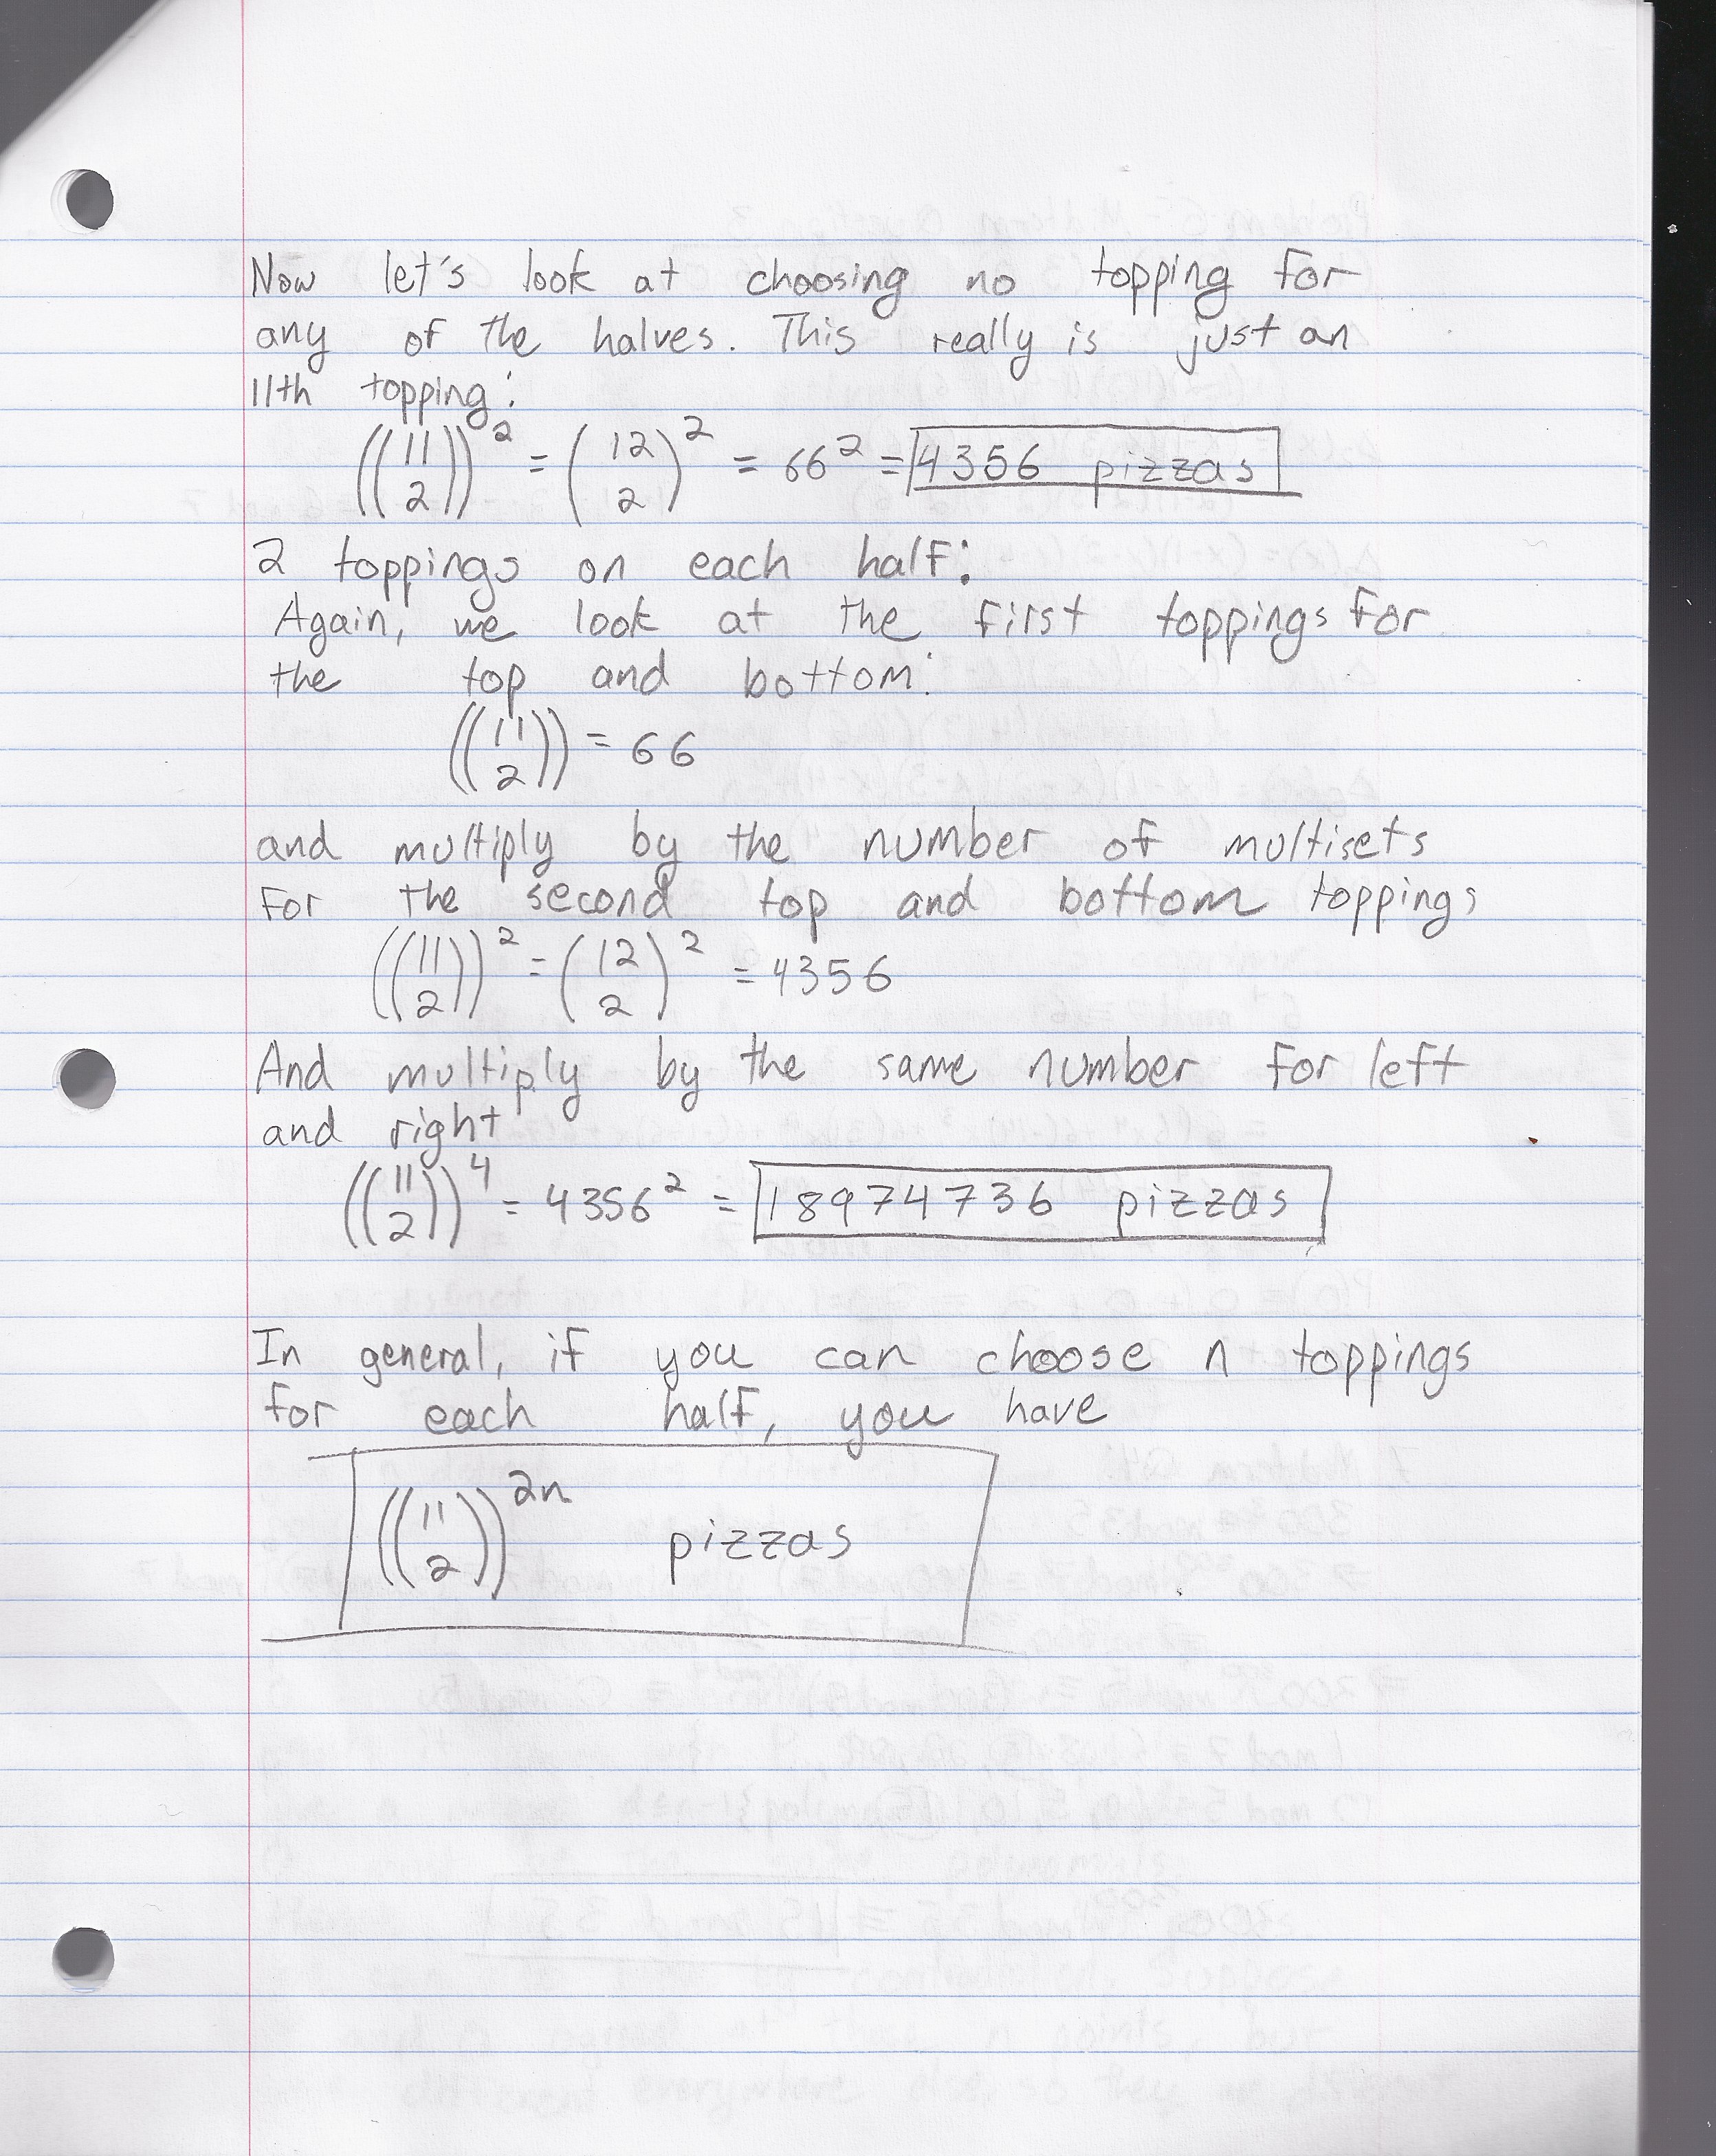 Now let's look at choosing no topping for
any of the halves. This really is just an
11th topping:
((11 2))^2 = (12 2)^2 = 66^2 = 4356 pizzas
2 toppings on each half:
Again, we look at the first toppings for
the top and bottom:
((11 2)) = 66
and multiply by the number of multisets
for the second top and bottom toppings
((11 2))^2 = (12 2)^2 = 4356
And multiply by the same number for left
and right
((11 2))^4 = 4356^2 = 18974736 pizzas
In general, if you can choose n toppings
for each half, you have
((11 2))^2n pizzas